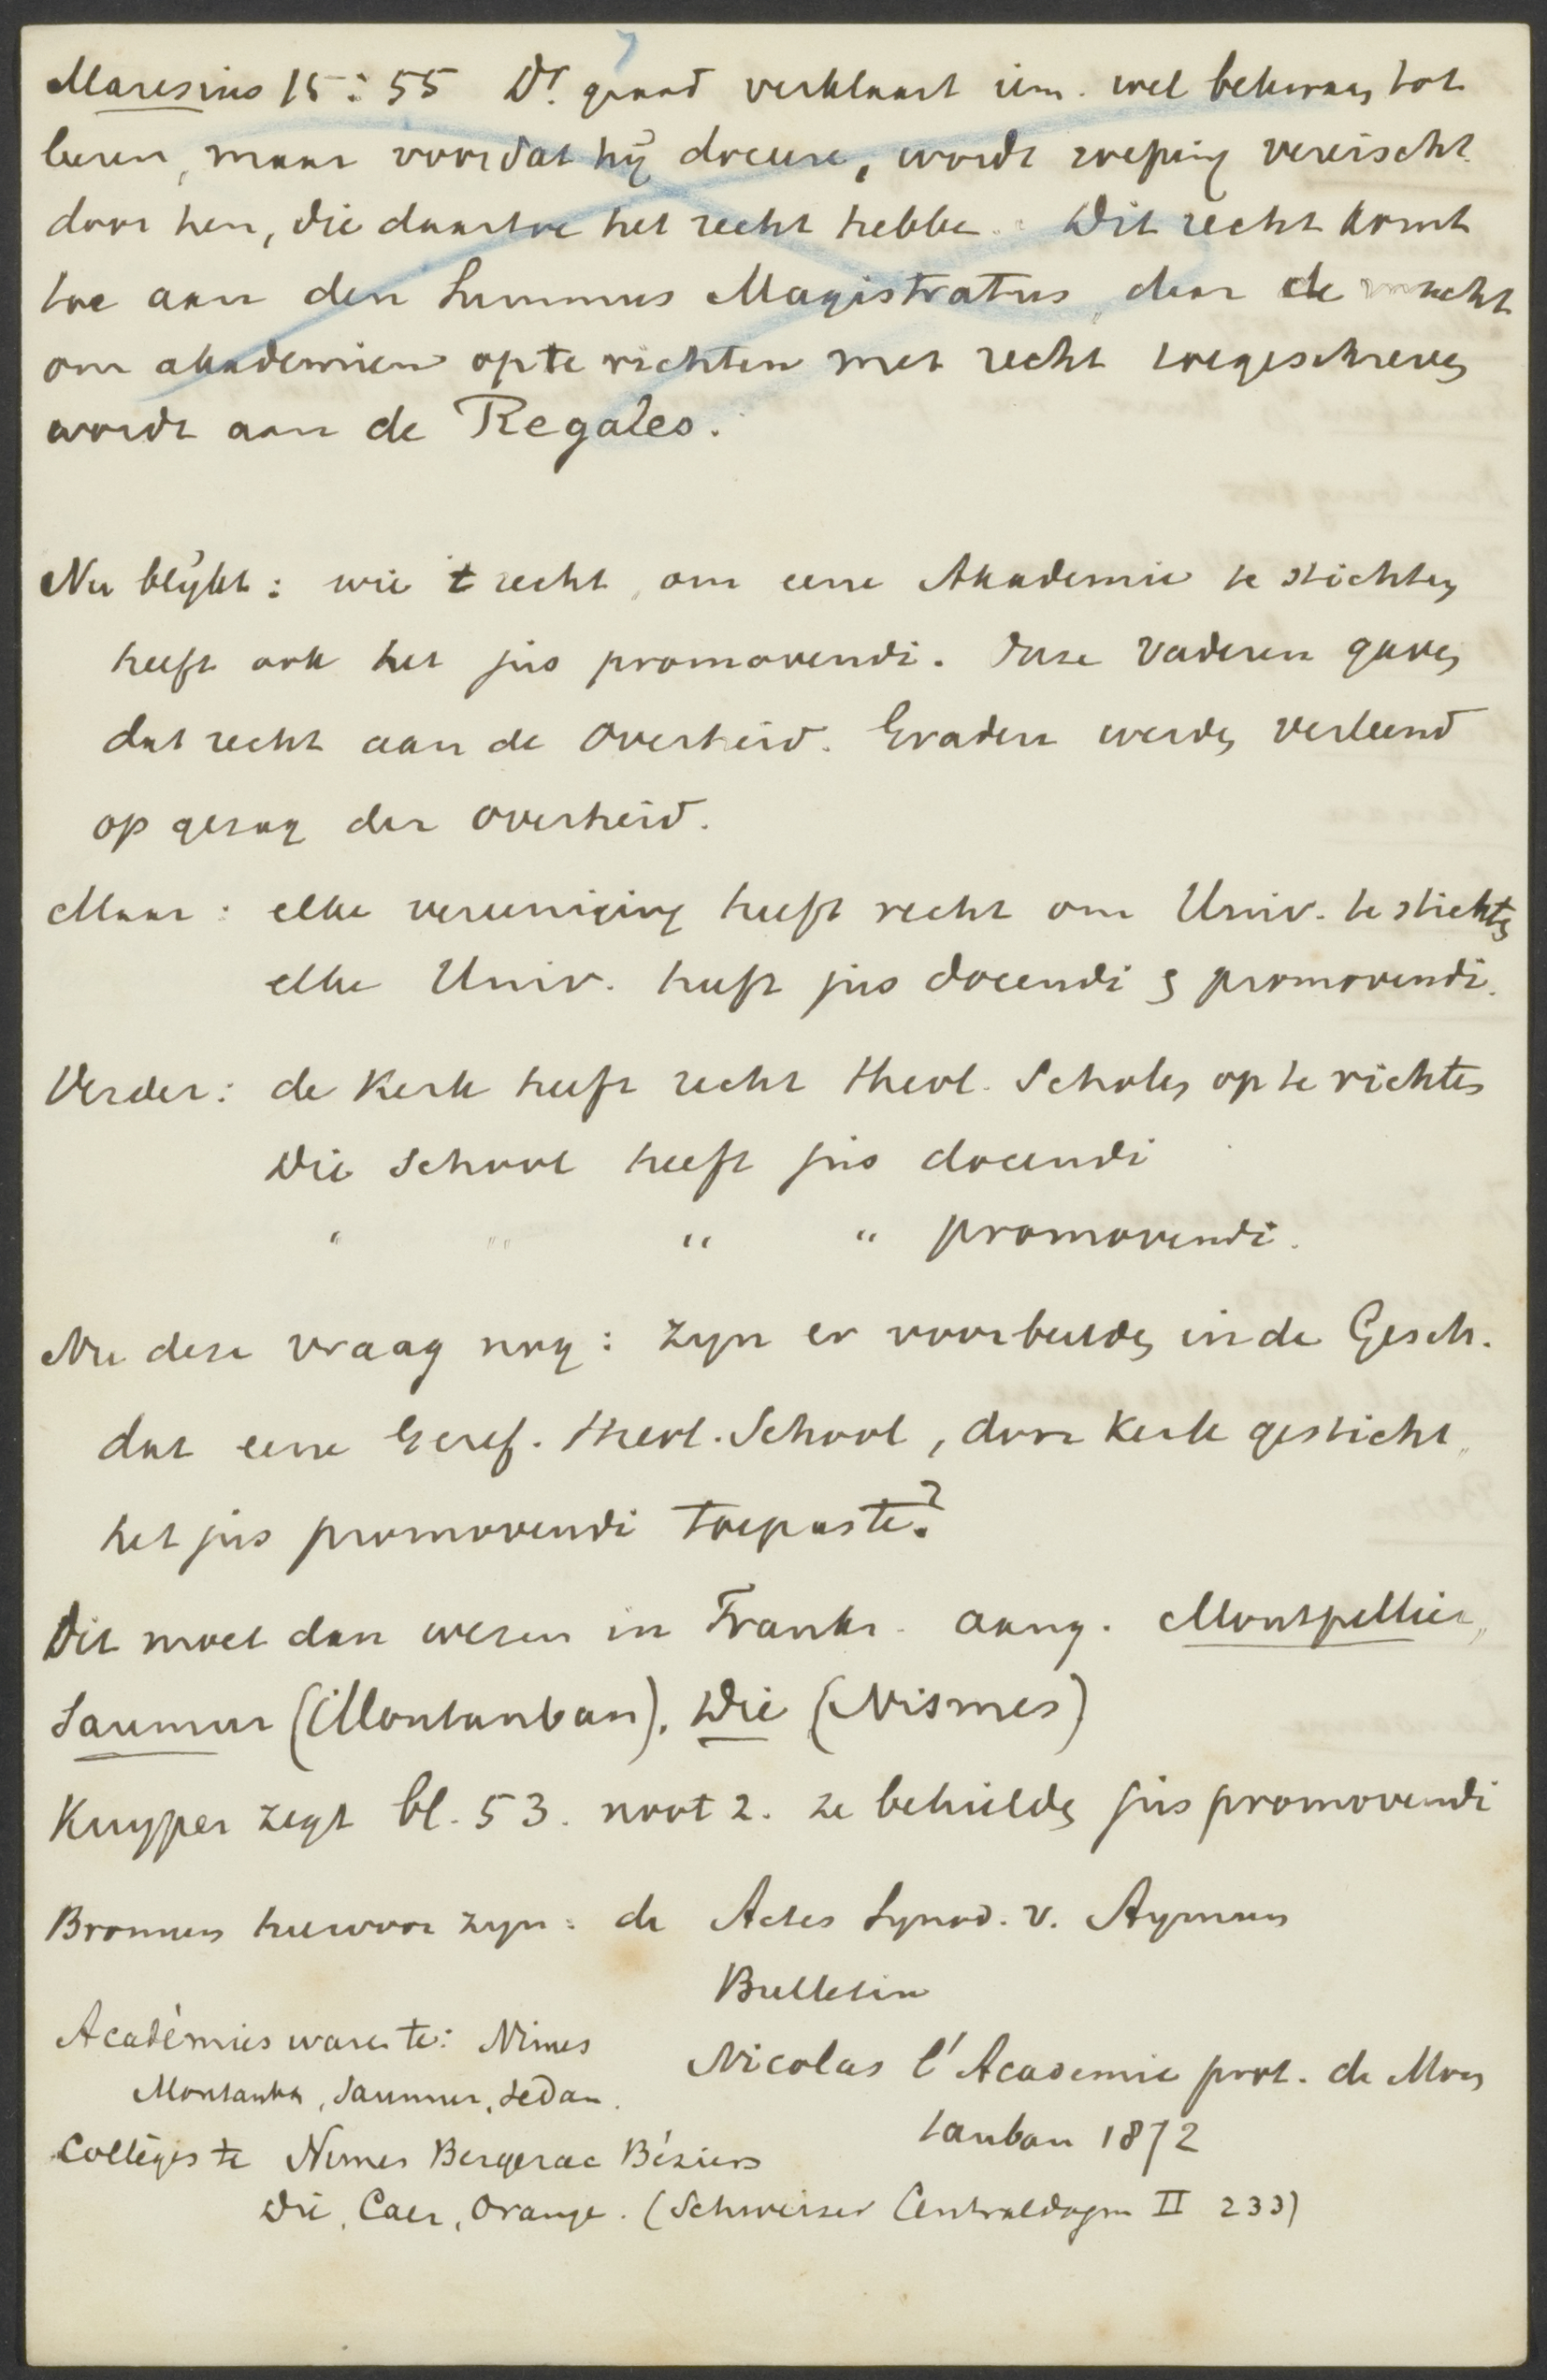 Maresius 15 : 55 Dr. graad verklaart iem. wel bekwaam tot
leeren, maar voordat hij doceere, wordt roeping vereischt
door hen, die daartoe het recht hebben. Dit recht komt
toe aan den Summus Magistratus, daar de macht
om akademien op te richten met recht toegeschreven
wordt aan de Regales.
Nu blijkt: wie 't recht om eene Akademie te stichten
heeft ook het jus promovendi. Onze vaderen gaven
dat recht aan de Overheid. Graden werden verleend
op gezag der Overheid.
Maar: elke vereeniging heeft recht om Univ. te stichten
elke Univ. heeft jus docendi & promovendi.
Verder: de Kerk heeft recht Theol. Scholen op te richten
Die School heeft jus docendi
" " " " promovendi.
Nu deze vraag nog: zijn er voorbeelden in de Gesch.
dat eene Geref. Theol. School, door Kerk gesticht,
het jus promovendi toepaste?
Dit moet dan wezen in Frankr. aang. Montpellier,
Saumur (Montauban), Die (Nismes)
Kuyper zegt bl. 53. noot 2. ze behielden jus promovendi
Bronnen hiervoor zijn: de Actes Synod. v. Aymon
Bulletin
Nicolas l'Academie prot. de Mon
tauban 1872
Académies waren te: Nimes
Montauban, Saumur, Sedan.
Collèges te Nimes Bergerac Béziers
Die, Caen, Orange. (Schweizer Centraldogm II 233)